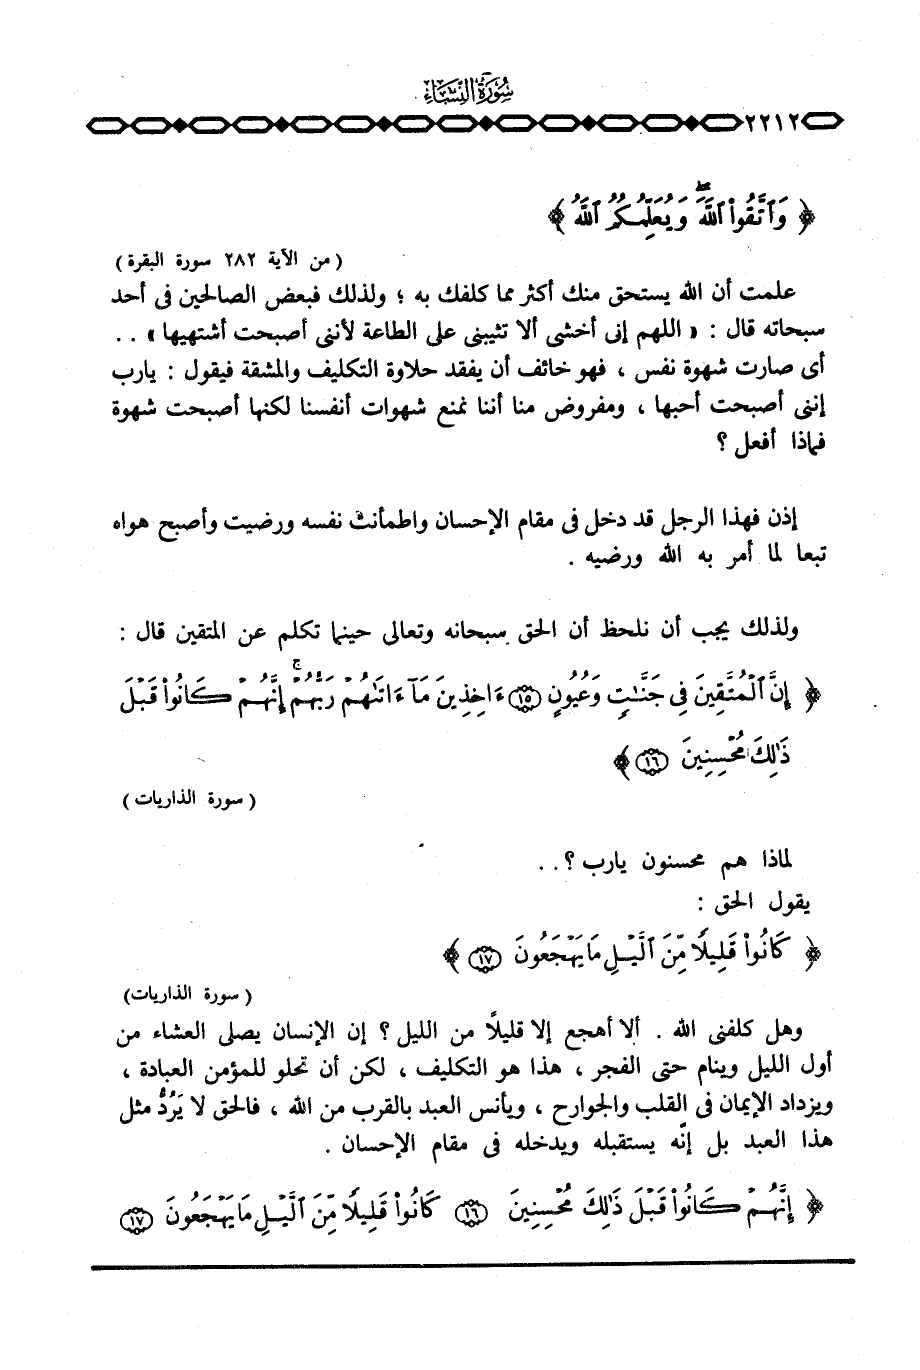 سُورَةُ النِّسَاءِ
٢٢١٢
﴿ وَٱتَّقُوا۟ ٱللَّهَ ۖ وَيُعَلِّمُكُمُ ٱللَّهُ ﴾
( من الآية ٢٨٢ سورة البقرة )
علمت أن الله يستحق منك أكثر مما كلفك به ؛ ولذلك فبعض الصالحين فى أحد
سبحاته قال : « اللهم إنى أخشى ألا تثيبنى على الطاعة لأننى أصبحت أشتهيها » . .
أى صارت شهوة نفس ، فهو خائف أن يفقد حلاوة التكليف والمشقة فيقول : يارب
إننى أصبحت أحبها ، ومفروض منا أننا نمنع شهوات أنفسنا لكنها أصبحت شهوة
فماذا أفعل ؟
إذن فهذا الرجل قد دخل فى مقام الإحسان واطمأنت نفسه ورضيت وأصبح هواه
تبعا لما أمر به الله ورضيه .
ولذلك يجب أن نلحظ أن الحق سبحانه وتعالى حينما تكلم عن المتقين قال :
﴿ إِنَّ ٱلْمُتَّقِينَ فِى جَنَّـٰتٍ وَعُيُونٍ ١٥ ءَاخِذِينَ مَآ ءَاتَىٰهُمْ رَبُّهُمْ ۚ إِنَّهُمْ كَانُوا۟ قَبْلَ
ذَٰلِكَ مُحْسِنِينَ ١٦ ﴾
( سورة الذاريات )
لماذا هم محسنون يارب ؟ . .
يقول الحق :
﴿ كَانُوا۟ قَلِيلًا مِّنَ ٱلَّيْلِ مَا يَهْجَعُونَ ١٧ ﴾
( سورة الذاريات )
وهل كلفنى الله . ألا أهجع إلا قليلًا من الليل ؟ إن الإنسان يصلى العشاء من
أول الليل وينام حتى الفجر ، هذا هو التكليف ، لكن أن تحلو للمؤمن العبادة ،
ويزداد الإيمان فى القلب والجوارح ، ويأنس العبد بالقرب من الله ، فالحق لا يَرُدُّ مثل
هذا العبد بل إنَّه يستقبله ويدخله فى مقام الإحسان .
﴿ إِنَّهُمْ كَانُوا۟ قَبْلَ ذَٰلِكَ مُحْسِنِينَ ١٦ كَانُوا۟ قَلِيلًا مِّنَ ٱلَّيْلِ مَا يَهْجَعُونَ ١٧